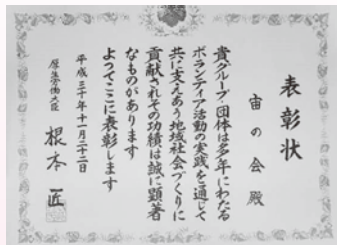 表彰状
宙の会殿
貴グループ・団体は多年にわたる
ボランティア活動の実践を通じて
共に支えあう地域社会づくりに
貢献されその功績は誠に顕著
なものがあります
よってここに表彰します
平成三十年十一月二十二日
厚生労働大臣 根本匠